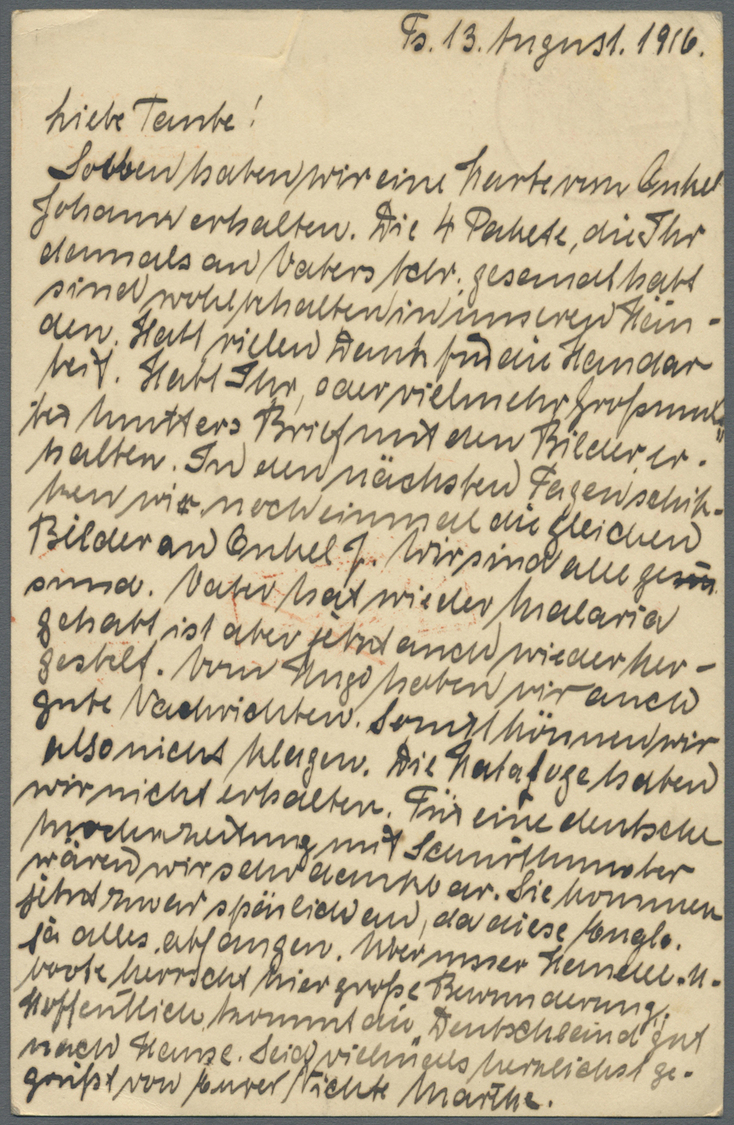 Ts. 13. August. 1916.
Liebe Tante!
Soeben haben wir eine Karte von Onkel
Johann erhalten. Die 4 Pakete, die Ihr
damals an Vaters Adr. gesandt habt
sind wohlbehalten in unseren Hän-
den. Habt vielen Dank für die Handar
beit. Habt Ihr, oder vielmehr Großmut
ter Mutters Brief mit den Bilder, er-
halten. In den nächsten Tagen schik-
ken wir noch einmal die gleichen
Bilder an Onkel J. Wir sind alle ge
sund. Vater hat wieder Malaria
gehabt ist aber jetzt auch wieder her-
gestelt. Vom Hugo haben wir auch
gute Nachrichten. Somit können wir
also nicht klagen. Die Kataloge haben
wir nicht erhalten. Für eine deutsche
Modenzeitung mit Schnittmuster
wären wir sehr dankbar. Sie kommen
jetzt zwar spärlich an, da diese Englo.
ja alles abfangen. Über unser Handels-U-
boote herrscht hier große Bewunderung.
Hoffentlich kommt die "Deutschland" gut
nach Hause. Seid vielmals herzlichst ge-
grüßt von Eurer Nichte Marthe.